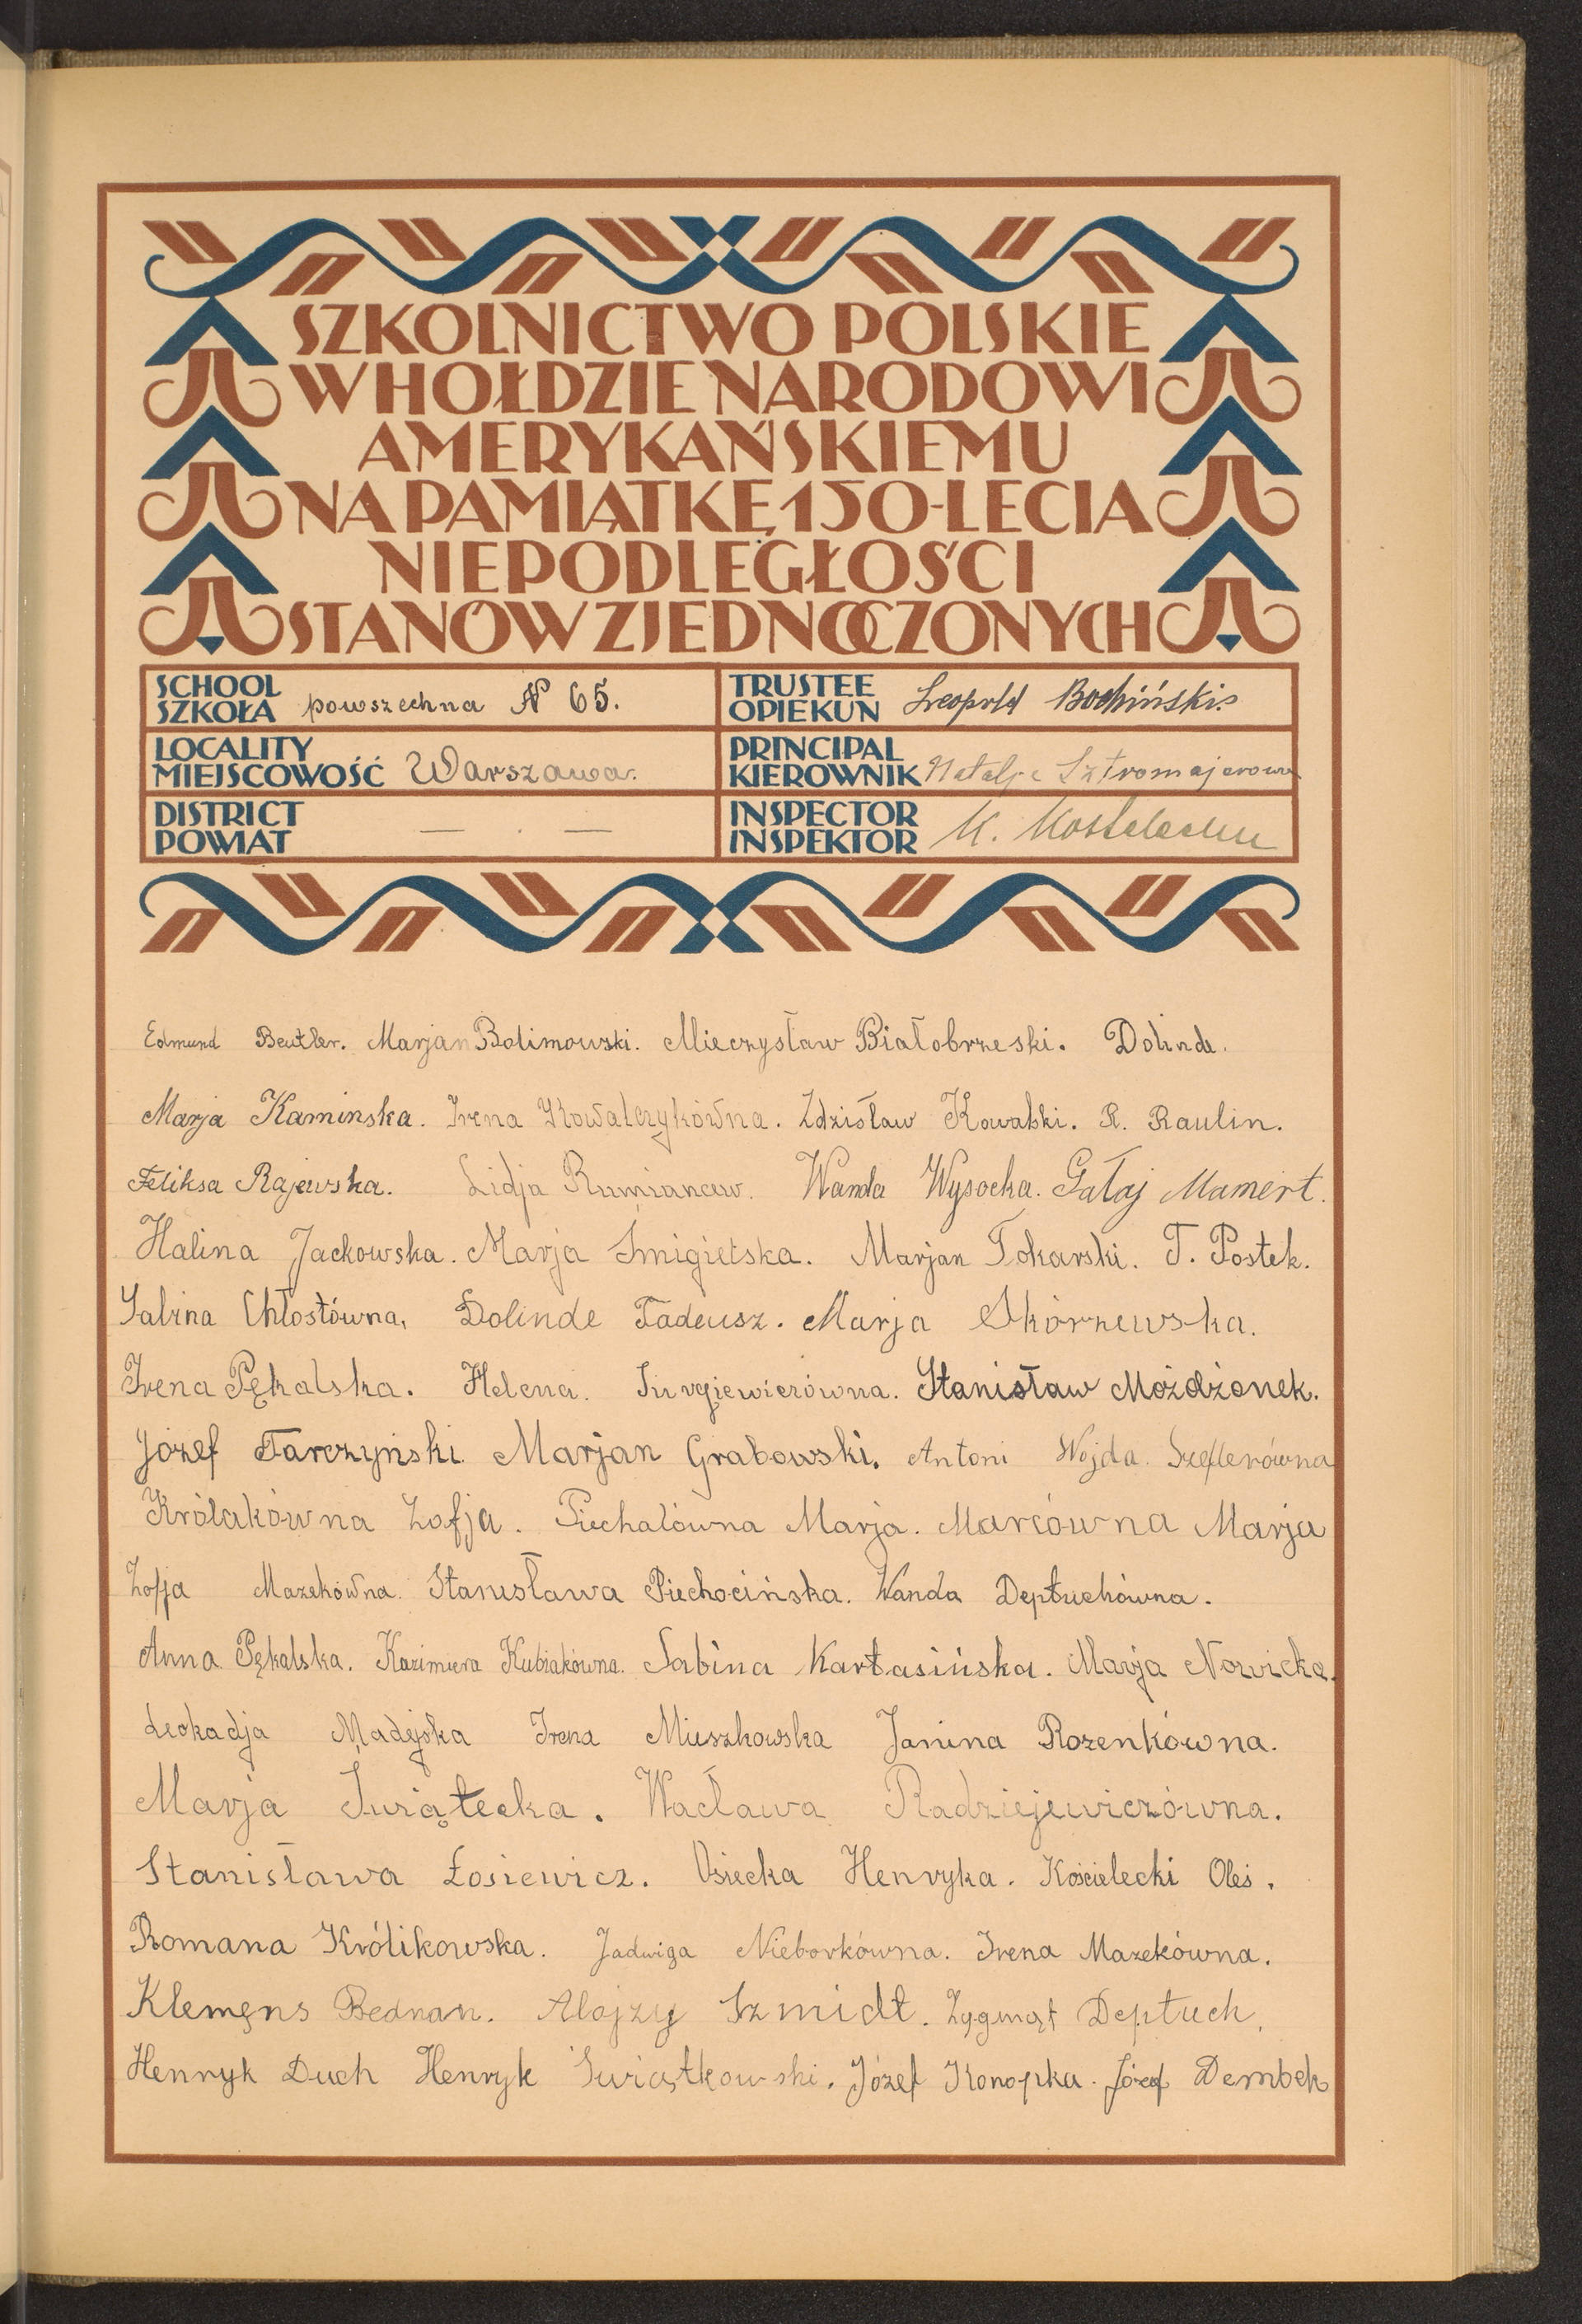 SZKOLNICTWO POLSKIE
W HOŁDZIE NARODOWI
AMERYKAŃSKIEMU
NA PAMIĄTKĘ 150-LECIA
NIEPODLEGŁOŚCI
STANÓW ZJEDNOCZONYCH
SCHOOL
SZKOŁA powszechna № 65.
TRUSTEE
OPIEKUN Leopold Bochiński.
LOCALITY
MIEJSCOWOŚĆ Warszawa.
PRINCIPAL
KIEROWNIK Natalja Sztromajerowa
DISTRICT
POWIAT — . —
INSPECTOR
INSPEKTOR M.
Edmund Beutler. Marjan Bolimowski. Mieczysław Białobrzeski. Dolinde.
Marja Kaminska. Irena Kowalczykówna. Zdzisław Kowalski. R. Raulin.
Feliksa Rajewska. Lidja Rumiancew. Wanda Wysocka. Gałaj Mamert.
Halina Jackowska. Marja Śmigielska. Marjan Tokarski. T. Postek.
Sabina Chłostówna, Dolinde Tadeusz. Marja Skórzewska.
Irena Pękalska. Helena. Jurgiewiczówna. Stanisław Możdżonek.
Józef Tarczyński. Marjan Grabowski. Antoni Wojda. Szeflerówna
Królakówna Zofja. Piechałówna Marja. Marcówna Marja
Zofja Mazekówna. Stanisława Piechocińska. Wanda Deptuchówna.
Anna Pękalska. Kazimiera Kubiakówna. Sabina Kartasińska. Marja Nowicka.
Leokadja Madejska Irena Mieszkowska Janina Rozenkówna.
Marja Świątecka. Wacława Radziejewiczówna.
Stanisława Łosiewicz. Osiecka Henryka. Kościelecki Oleś.
Romana Królikowska. Jadwiga Nieborkówna. Irena Mazekówna.
Klemęns Bednan. Alojzy Szmidt. Zygmąt Deptuch,
Henryk Duch Henryk Świątkowski. Józef Konopka. Józef Dembek